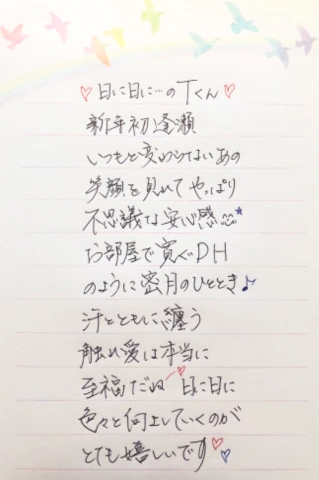 ♡日に日に…のTくん♡
新年初逢瀬
いつもと変わらないあの
笑顔を見れてやっぱり
不思議な安心感
お部屋で寛ぐDH
のように蜜月のひととき♪
汗とともに纏う
触れ愛は本当に
至福だね♡日に日に
色々と向上していくのが
とても嬉しいです♡♡